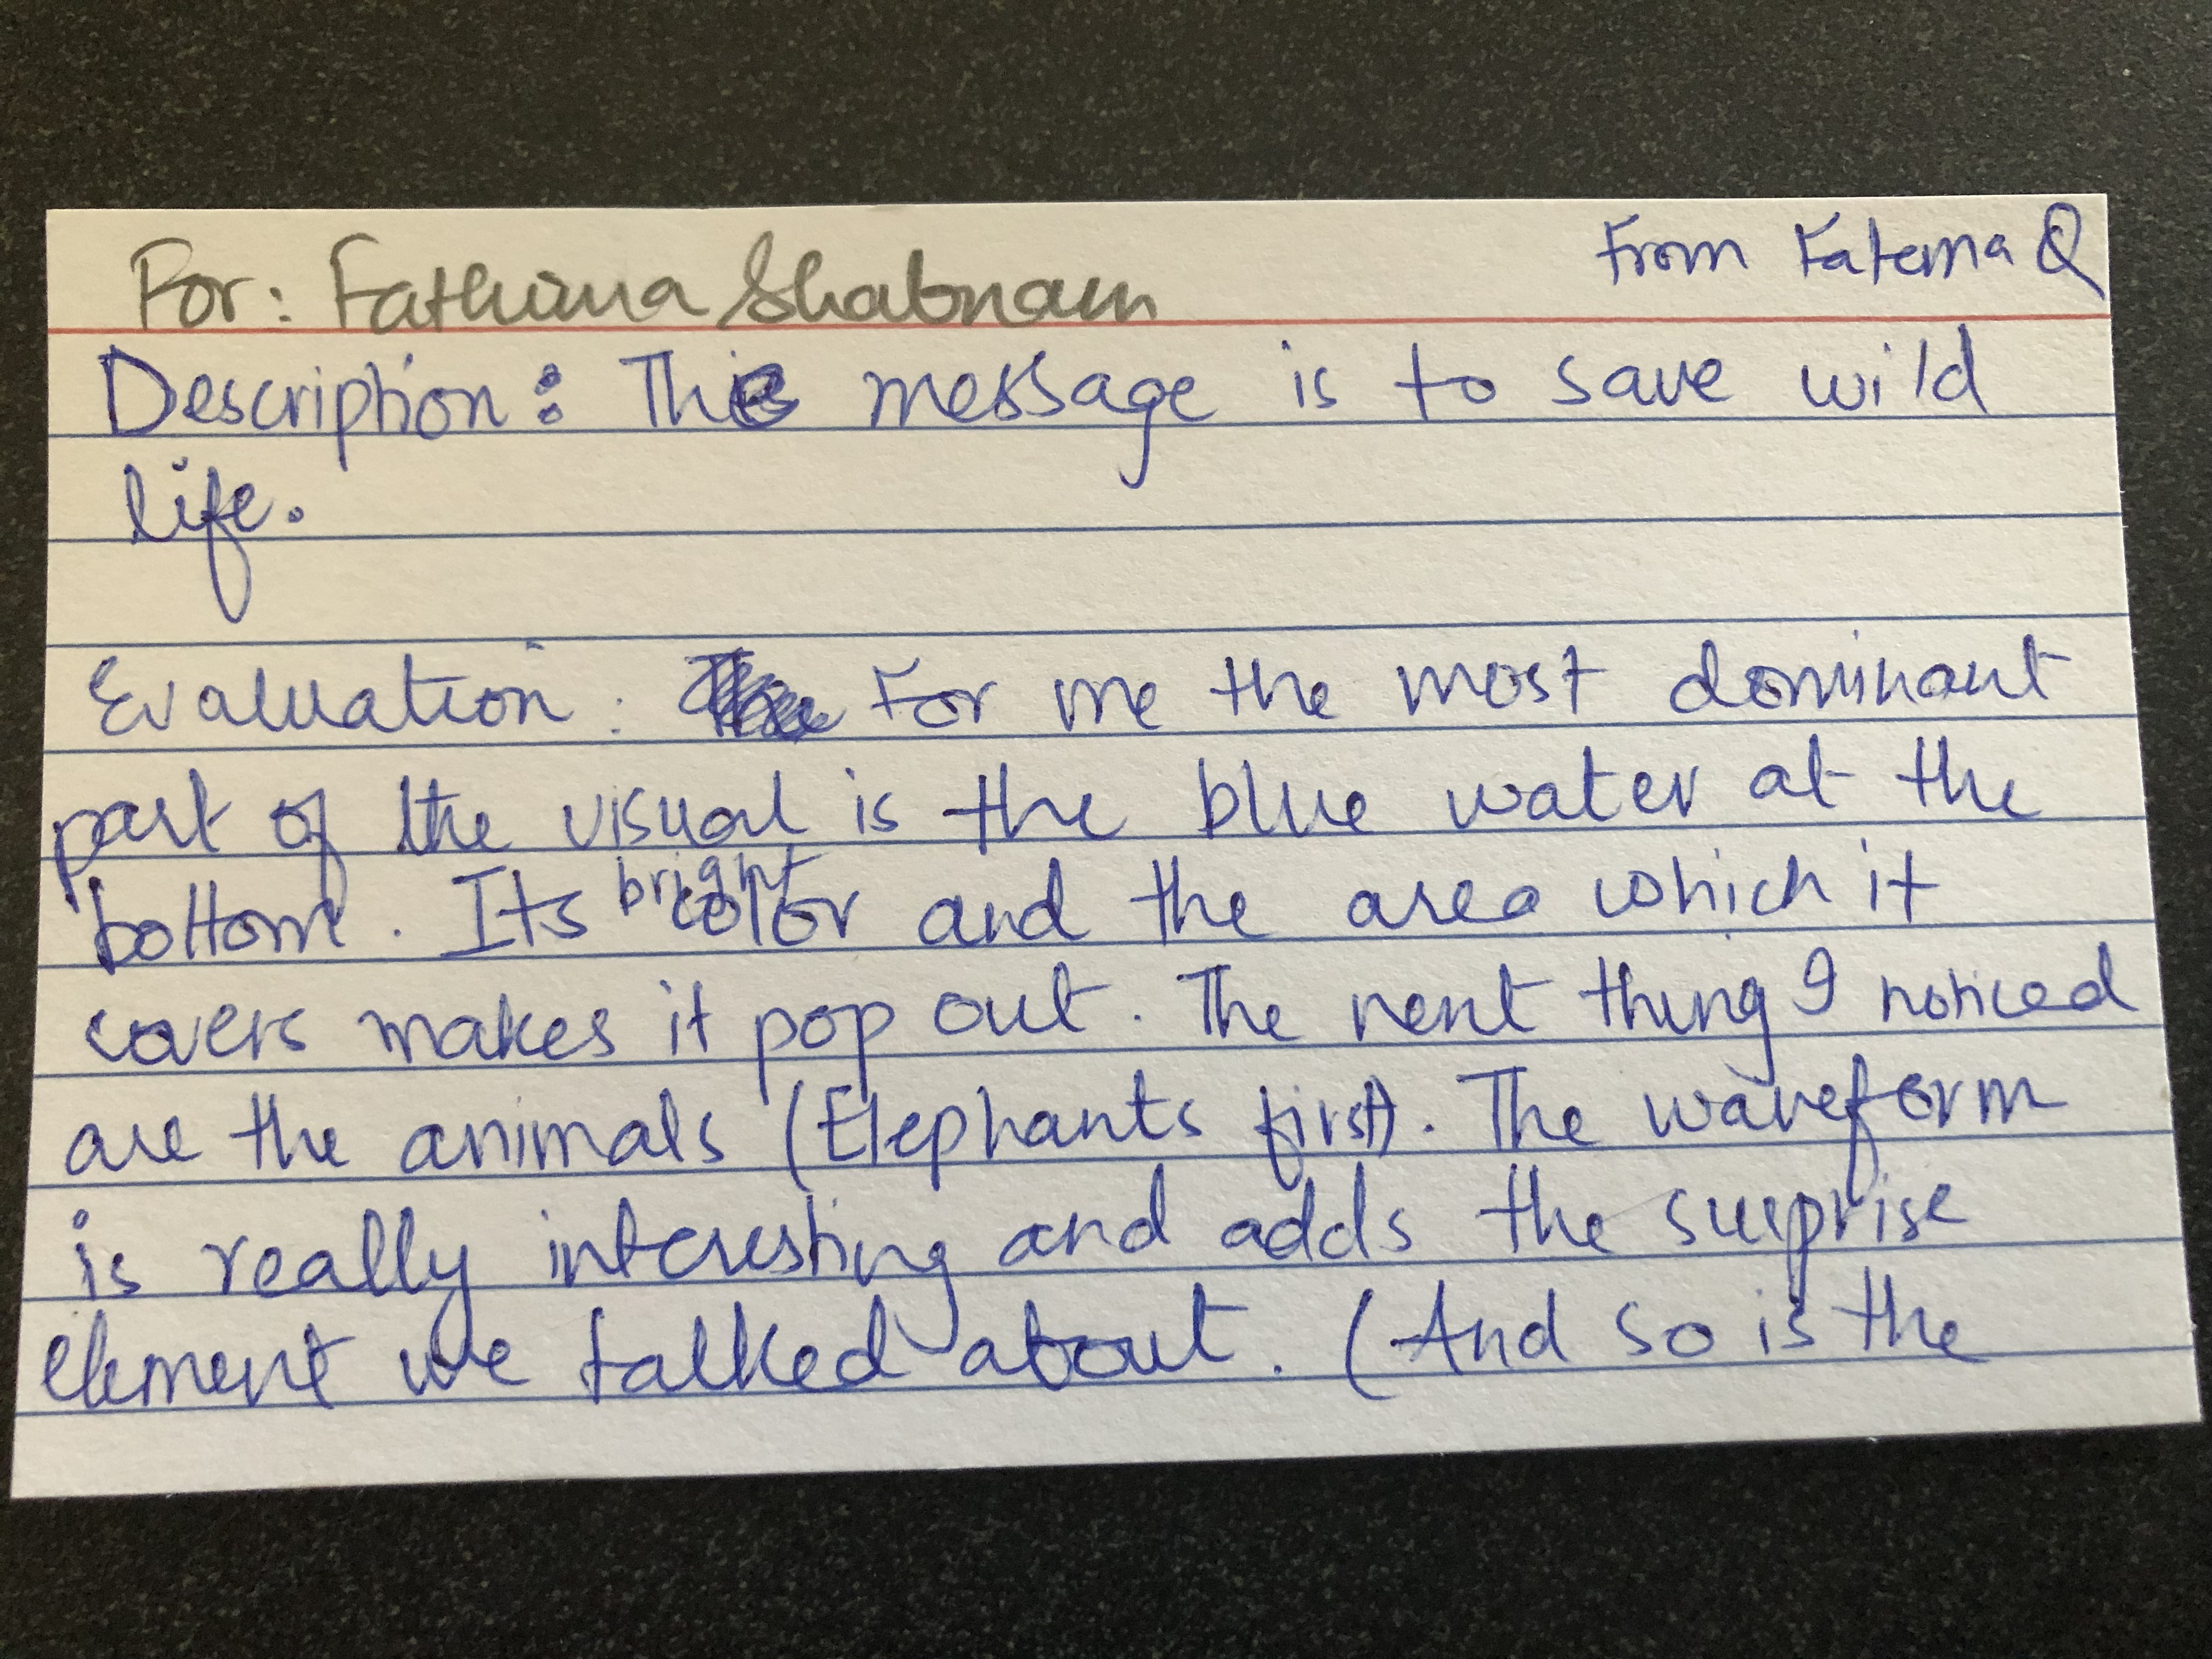 For: Fathima Shabnam
From Fatema Q
Description: This message is to save wild
life.
Evaluation: For me the most dominant
part of the visual is the blue water at the
bottom. Its bright color and the area which it
covers makes it pop out. The next thing I noticed
are the animals (Elephants first). The waveform
is really interesting and adds the surprise
element we talked about. (And so is the